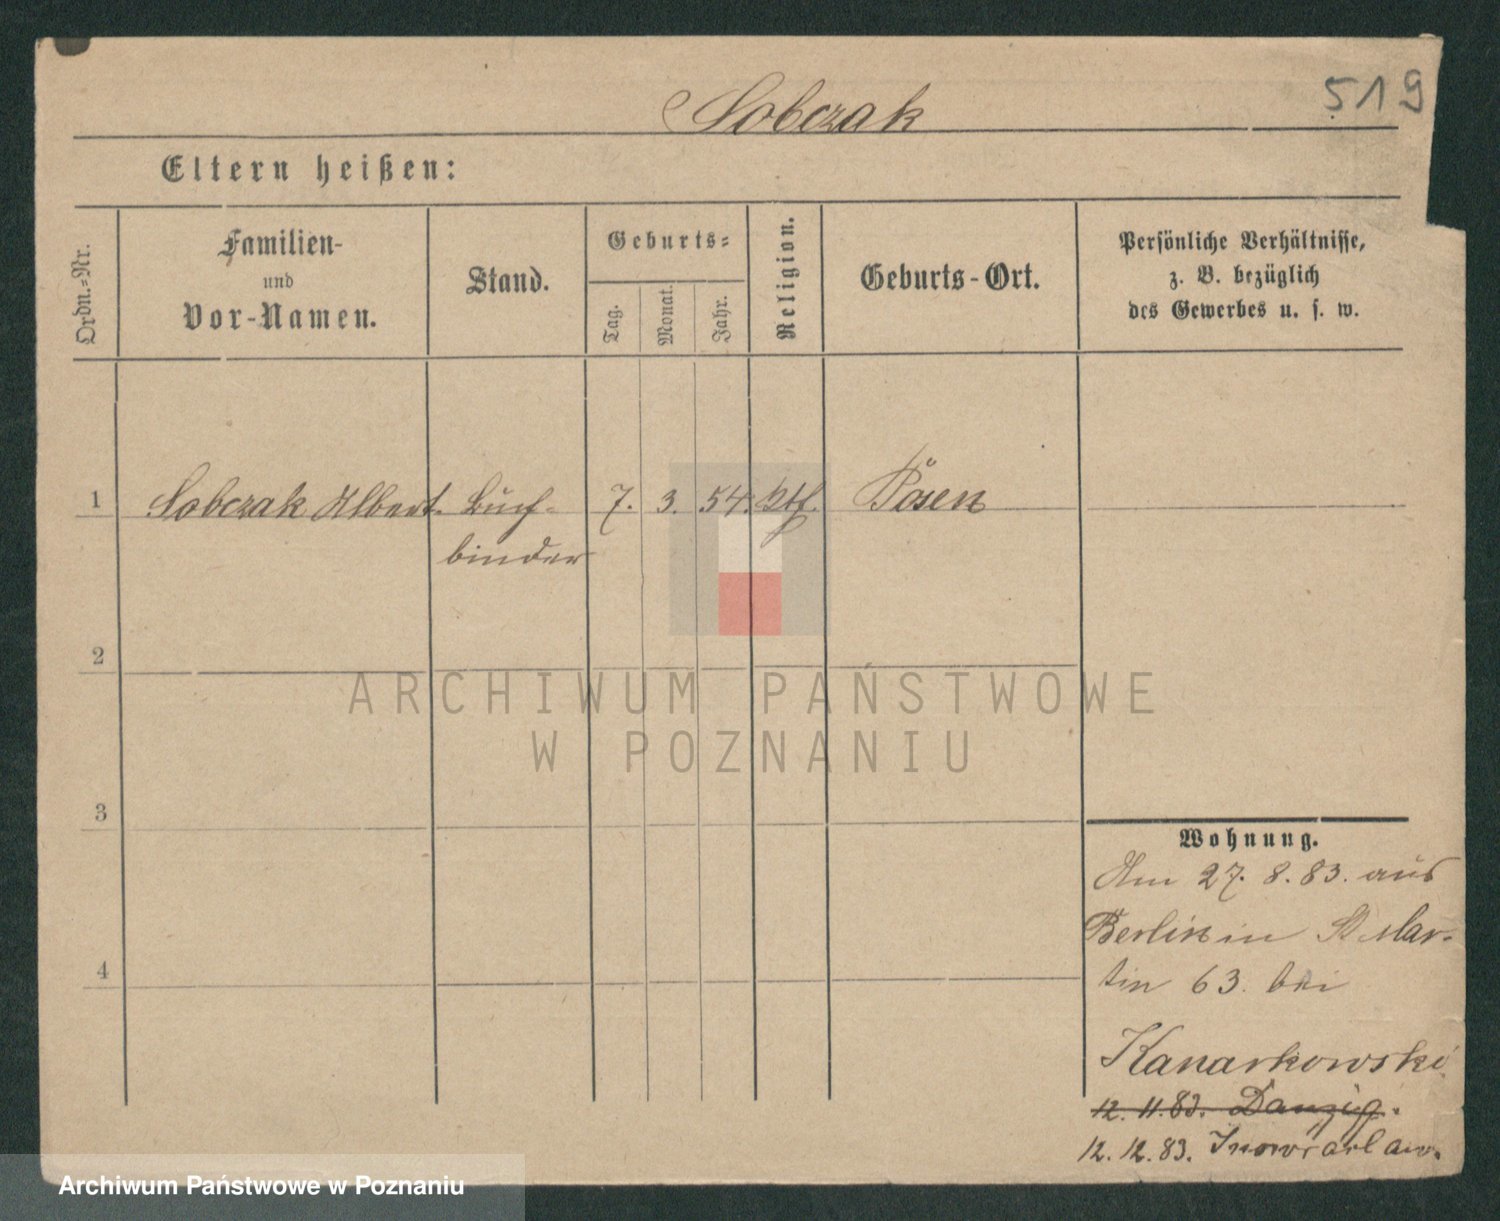 519
Sobczak
Eltern heißen:
Ordn.-Nr.
Familien-
und
Vor-Namen.
Stand.
Geburts-
Tag.
Monat.
Jahr.
Religion.
Geburts-Ort.
Persönliche Verhältnisse,
z. B. bezüglich
des Gewerbes u. s. w.
1 Sobczak Albert. Buch- 7. 3. 54. ktl. Posen
binder
2
ARCHIWUM PAŃSTWOWE
W POZNANIU
3
Wohnung.
Am 27. 8. 83. aus
Berlin in St Mar-
4
tin 63. bei
Kanarkowski
12. 11. 83. Danzig.
12. 12. 83. Inowraclaw.
Archiwum Państwowe w Poznaniu